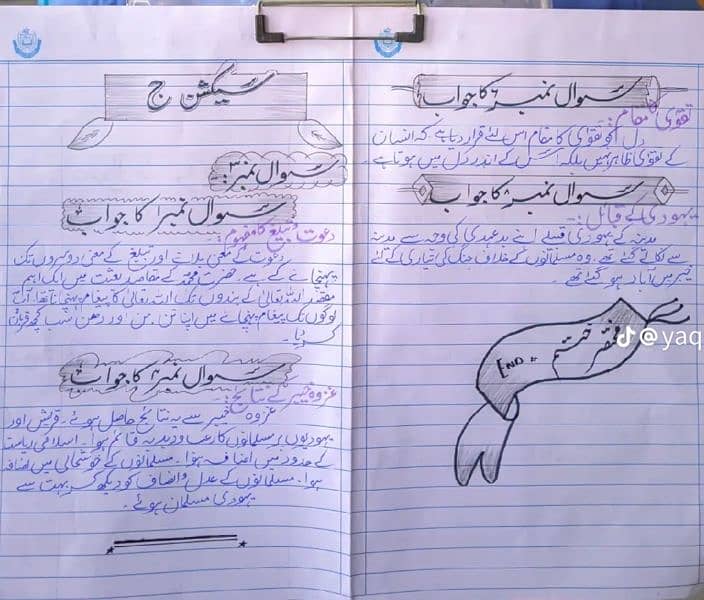 سیکشن ج
سوال نمبر ۳:
سوال نمبر ۱ کا جواب
دعوت و تبلیغ کا مفہوم:
دعوت کے معنی بلانے اور تبلیغ کے معنی دوسروں تک
پہنچانے کے ہے۔ حضرت محمدؐ کے مقاصد بعثت میں ایک اہم
مقصد اللہ تعالیٰ کے بندوں تک اللہ تعالیٰ کا پیغام پہنچانا تھا۔ آپؐ نے
لوگوں تک پیغام پہنچانے میں اپنا تن، من اور دھن سب کچھ قربان
کر دیا۔
سوال نمبر کا جواب
غزوہ خیبر کے نتائج:
غزوہ خیبر سے یہ نتائج حاصل ہوئے۔ قریش اور
یہودیوں پر مسلمانوں کا رعب و دبدبہ قائم ہوا۔ اسلامی ریاست
کے حدود میں اضافہ ہوا۔ مسلمانوں کے خوشحالی میں اضافہ
ہوا۔ مسلمانوں کے عدل و انصاف کو دیکھ کر بہت سے
یہودی مسلمان ہوئے۔
سوال نمبر کا جواب
تقویٰ کا مقام:
دل کو تقویٰ کا مقام اس لئے قرار دیا ہے کہ انسان
کے تقویٰ ظاہر نہیں بلکہ اس کے اندر دل میں ہوتا ہے۔
سوال نمبر ۸ کا جواب
یہودی کے قبائل:
مدینہ کے یہودی قبیلے اپنے بدعہدی کی وجہ سے مدینہ
سے نکالے گئے تھے۔ وہ مسلمانوں کے خلاف جنگ کی تیاری کے لئے
خیبر میں آباد ہو گئے تھے۔
مختصر ختم
END
@yaq